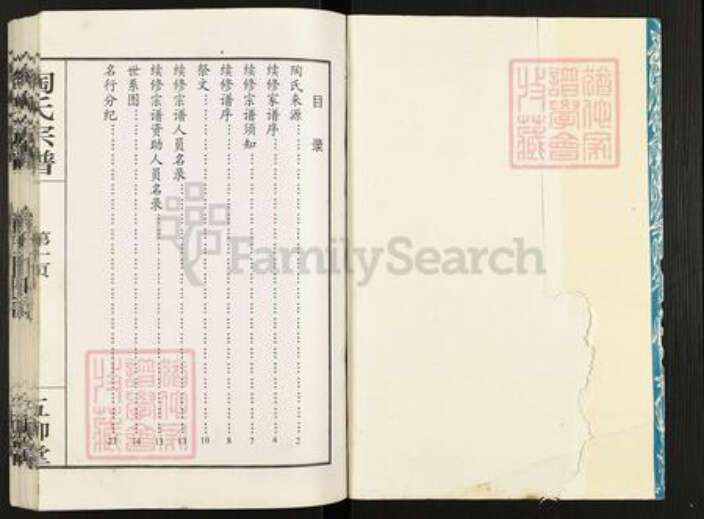 目录
陶氏来源……2
续修家谱序……4
续修宗谱须知……7
续修谱序……8
祭文……10
续修宗谱人员名录……13
续修宗谱资助人员名录……13
世系图……14
名行分纪……23
陶氏宗谱
第一页
五柳堂
FamilySearch